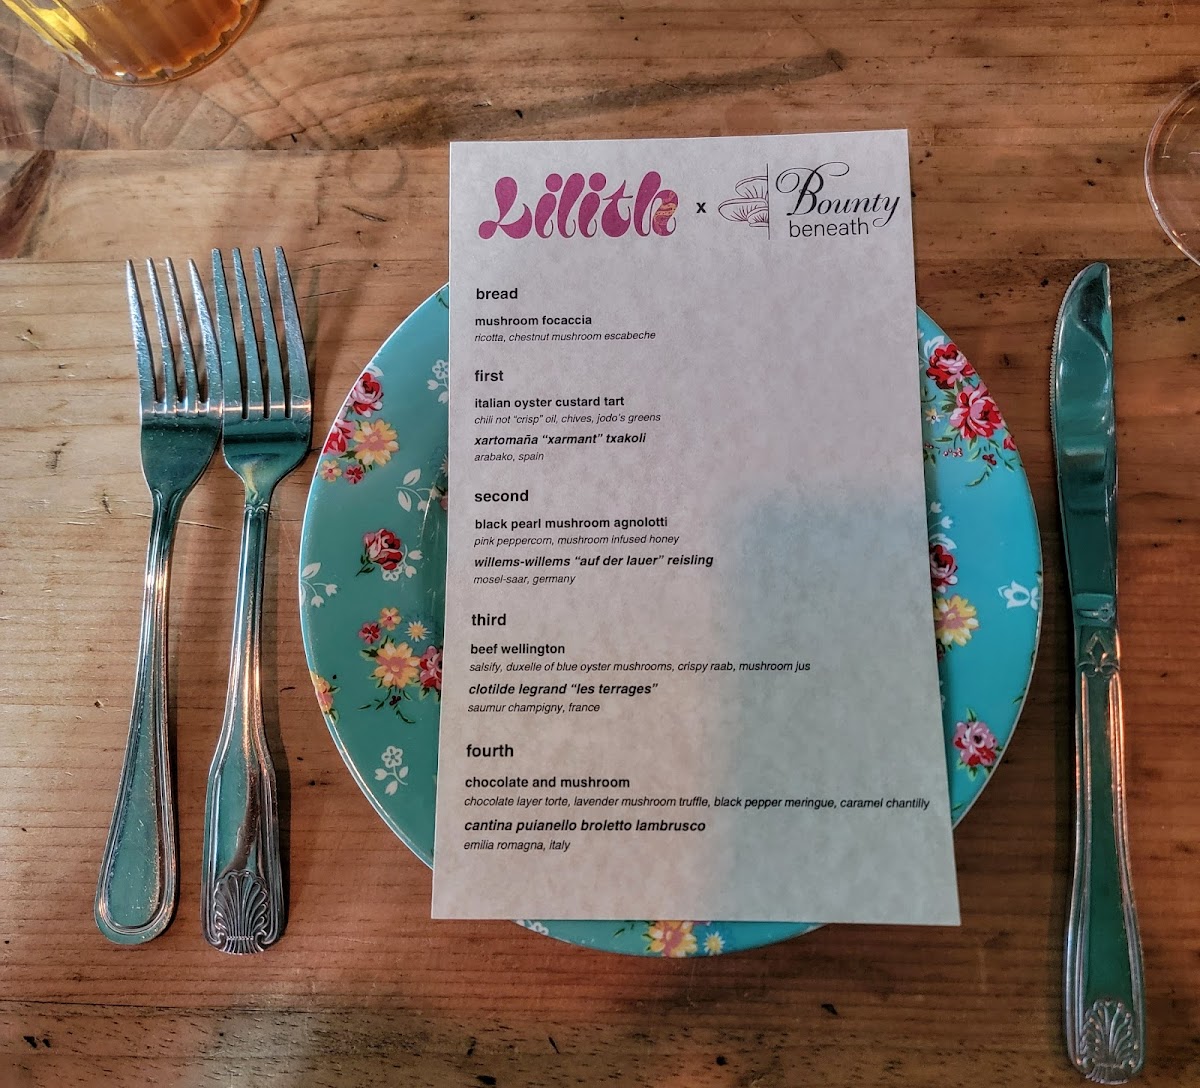 Lilith x Bounty
beneath
bread
mushroom focaccia
ricotta, chestnut mushroom escabeche
first
italian oyster custard tart
chili not “crisp” oil, chives, jodo’s greens
xartomaña “xarmant” txakoli
arabako, spain
second
black pearl mushroom agnolotti
pink peppercorn, mushroom infused honey
willems-willems “auf der lauer” reisling
mosel-saar, germany
third
beef wellington
salsify, duxelle of blue oyster mushrooms, crispy raab, mushroom jus
clotilde legrand “les terrages”
saumur champigny, france
fourth
chocolate and mushroom
chocolate layer torte, lavender mushroom truffle, black pepper meringue, caramel chantilly
cantina puianello broletto lambrusco
emilia romagna, italy